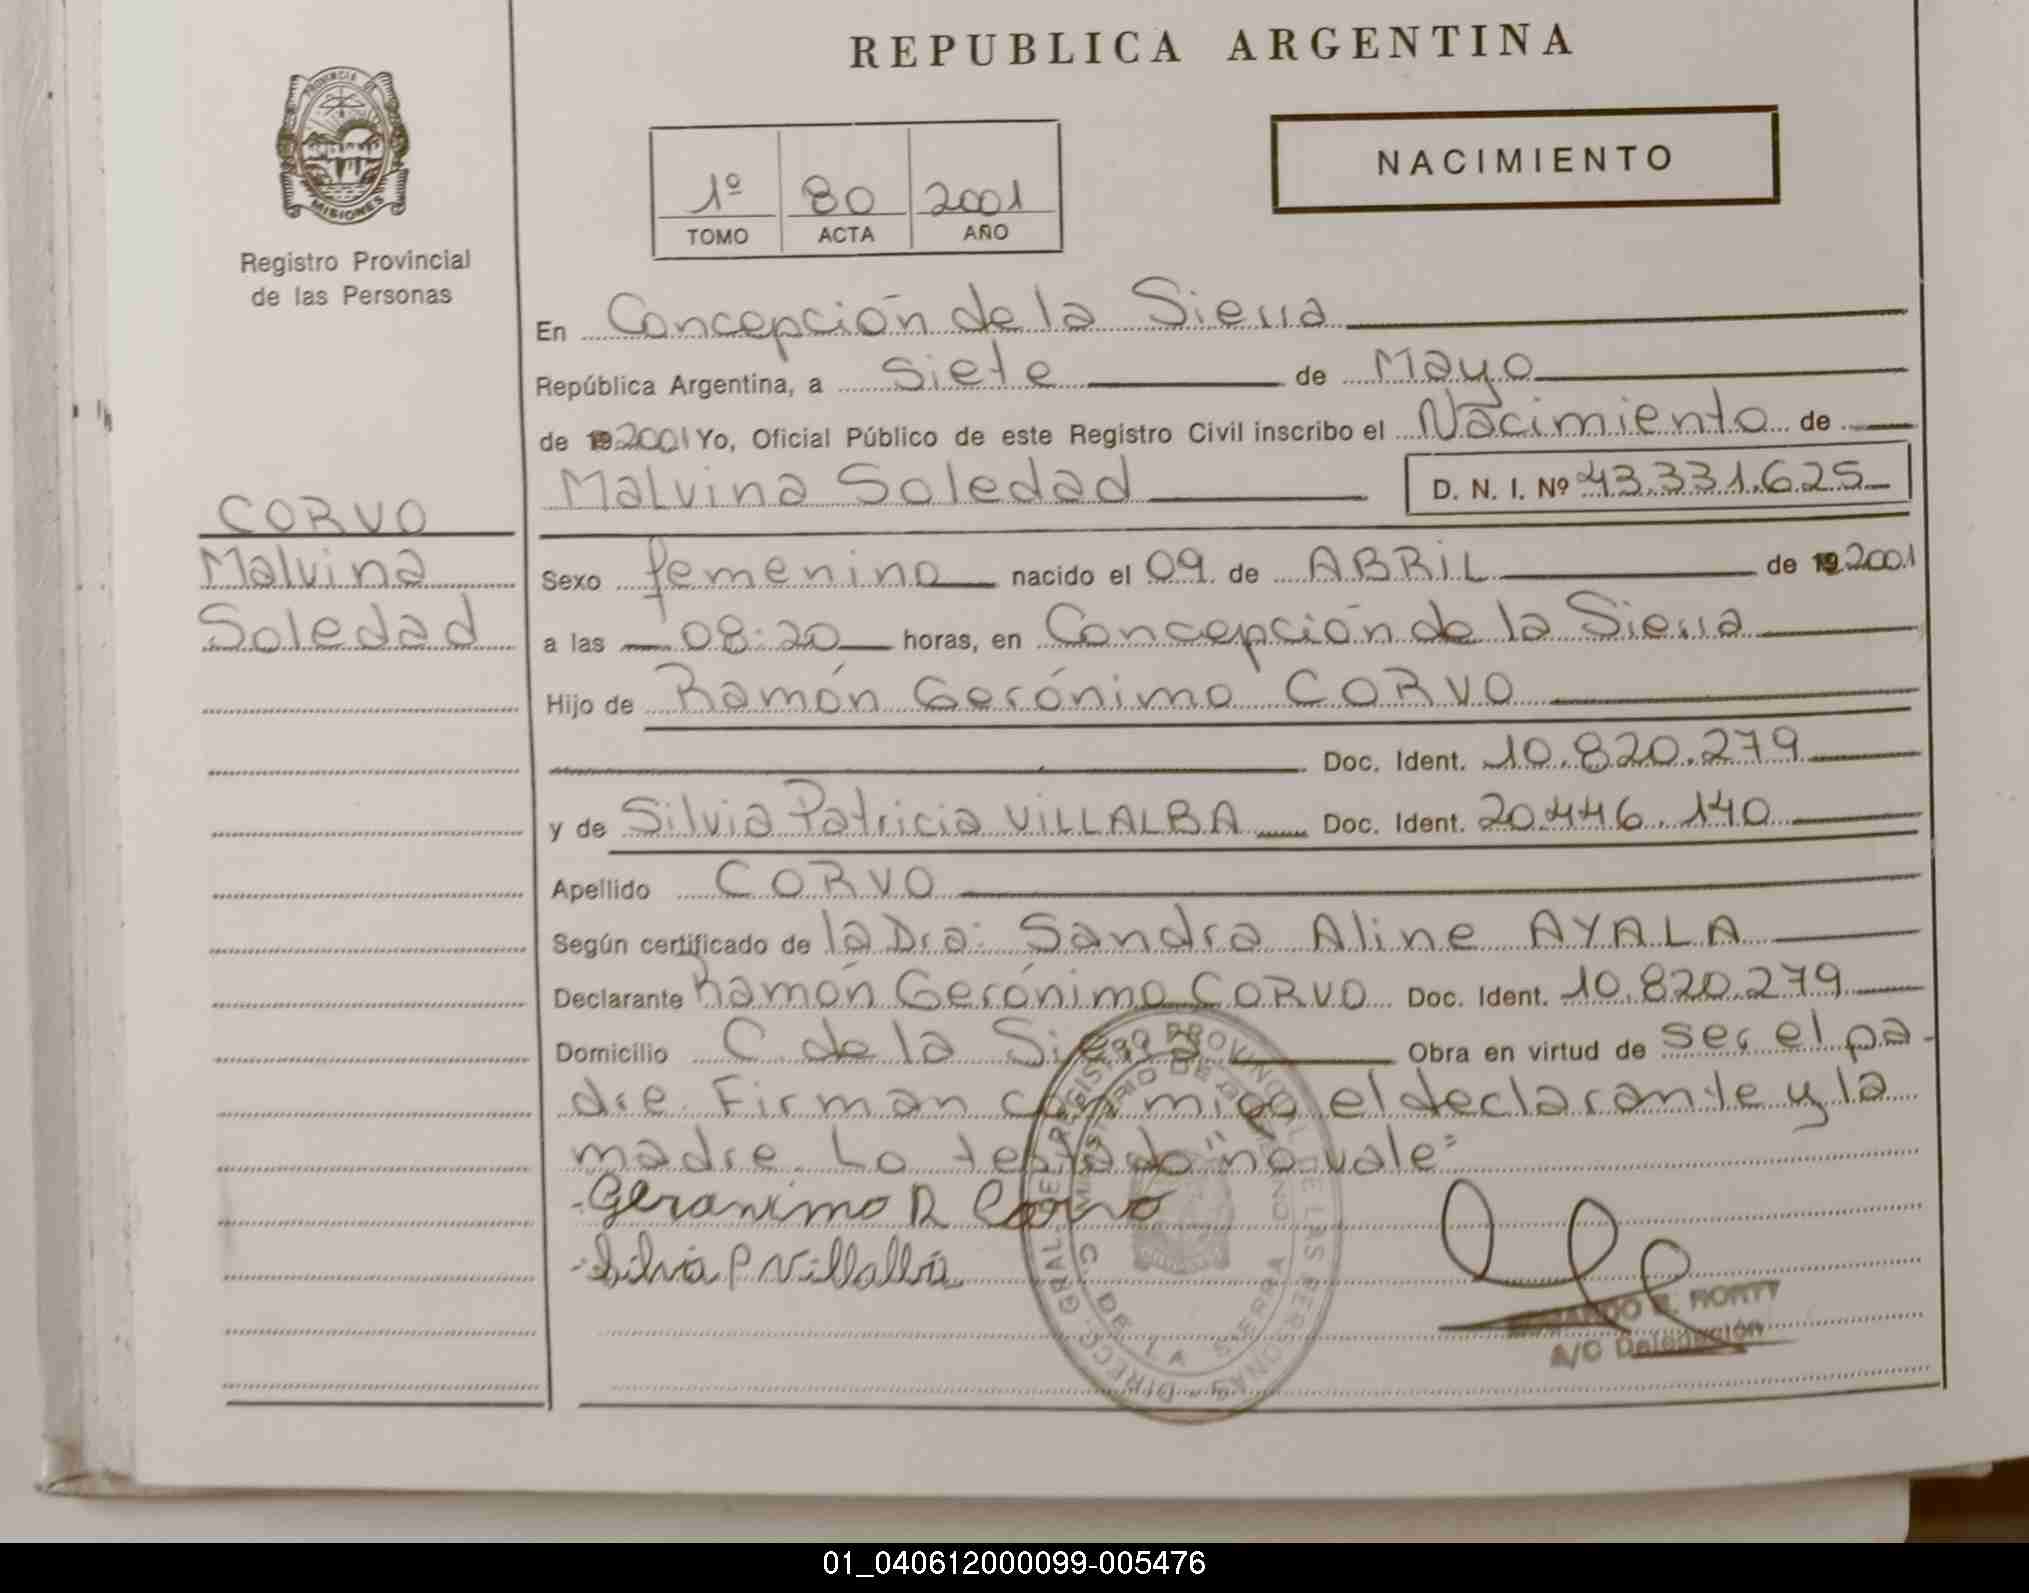 REPUBLICA ARGENTINA
PROVINCIA DE
MISIONES
Registro Provincial
de las Personas
NACIMIENTO
1º 80 2001
TOMO ACTA AÑO
En Concepción de la Sierra
República Argentina, a siete de Mayo
de 19 2001 Yo, Oficial Público de este Registro Civil inscribo el Nacimiento de
Malvina Soledad D. N. I. Nº 43.331.625
CORVO
Malvina
Soledad
Sexo femenino nacido el 09 de ABRIL de 19 2001
a las 08:20 horas, en Concepción de la Sierra
Hijo de Ramón Gerónimo CORVO
Doc. Ident. 10.820.279
y de Silvia Patricia VILLALBA Doc. Ident. 20.446.140
Apellido CORVO
Según certificado de la Dra. Sandra Aline AYALA
Declarante Ramón Gerónimo CORVO Doc. Ident. 10.820.279
Domicilio C. de la Sierra Obra en virtud de ser el pa-
dre. Firman conmigo el declarante y la
madre. Lo testado "no vale"
Geranimo R Corvo
Silvia P Villalba
DIRECC. GRAL. DE REGISTRO PROVINCIAL DE LAS PERSONAS
MINISTERIO DE GOBIERNO
C. DE LA SIERRA
R. HORTT
A/C Delegación
01_040612000099-005476